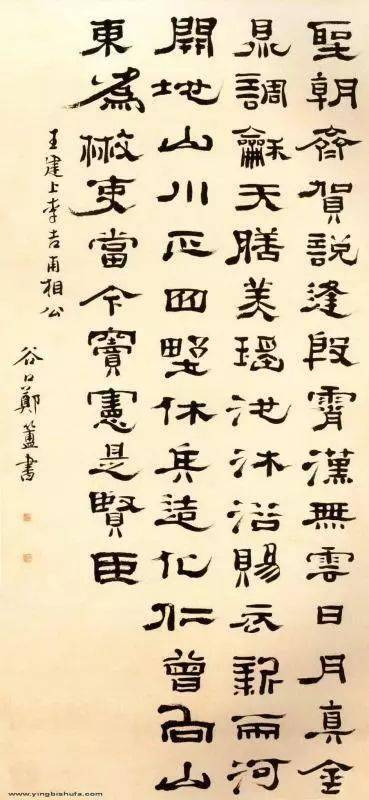 聖朝齊賀說逢殷霄漢無雲日月真金
鼎調龢天膳美瑤池沐浴賜衣新兩河
開地山川正四野休兵造化仁曾向山
東為散吏當今竇憲是賢臣
王建上李吉甫相公
谷口鄭簠書
www.yingbishufa.com